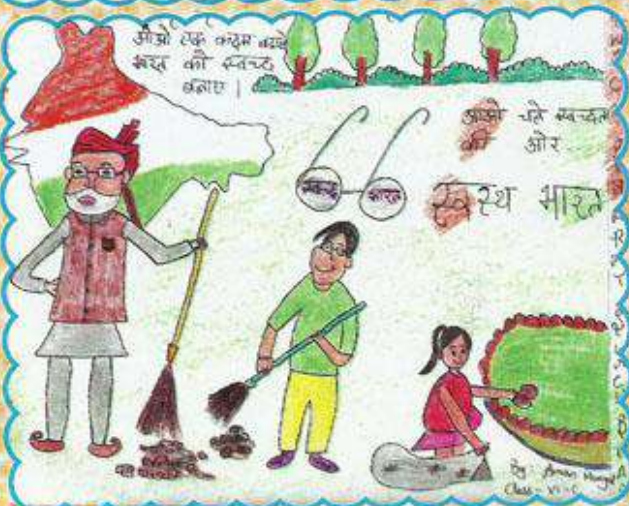 आओ एक कदम बढ़ाये
भारत को स्वच्छ
बनाए |
आओ चले स्वच्छता
की ओर
स्वच्छ भारत
स्वस्थ भारत
By Aman
Class - VI - C